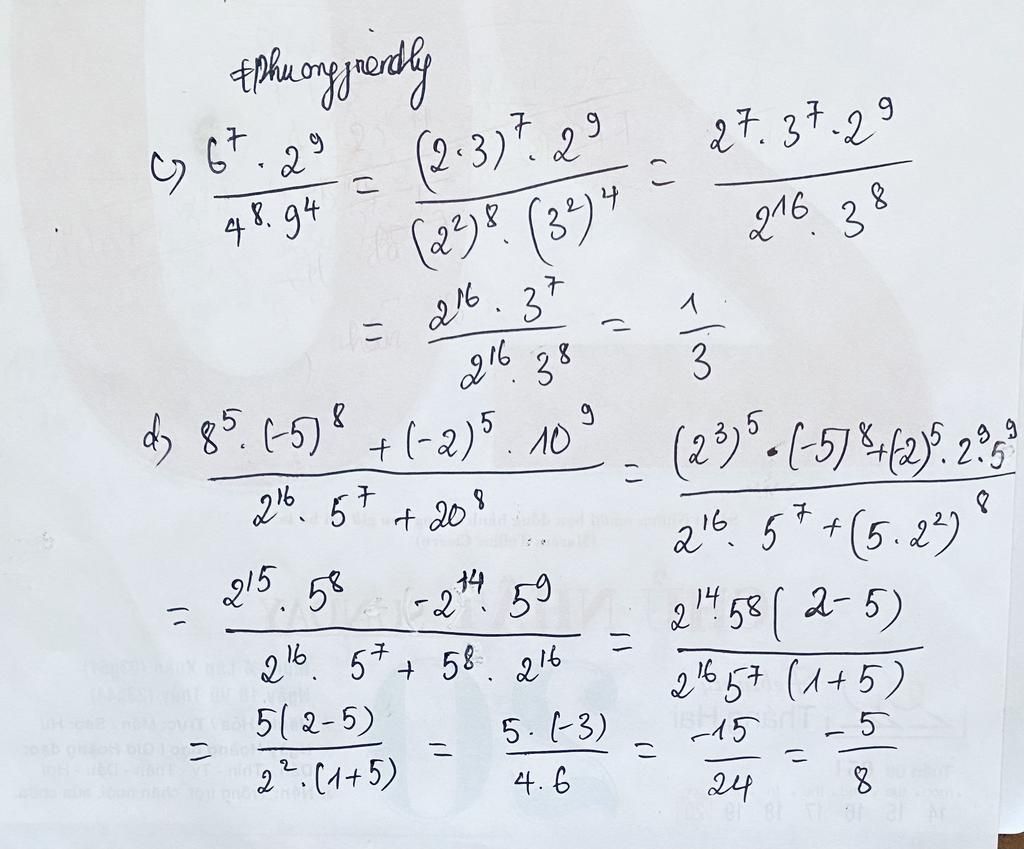 #phuongfriendly
c) \frac{6^7 \cdot 2^9}{4^8 \cdot 9^4} = \frac{(2 \cdot 3)^7 \cdot 2^9}{(2^2)^8 \cdot (3^2)^4} = \frac{2^7 \cdot 3^7 \cdot 2^9}{2^{16} \cdot 3^8}
= \frac{2^{16} \cdot 3^7}{2^{16} \cdot 3^8} = \frac{1}{3}
d) \frac{8^5 \cdot (-5)^8 + (-2)^5 \cdot 10^9}{2^{16} \cdot 5^7 + 20^8} = \frac{(2^3)^5 \cdot (-5)^8 + (-2)^5 \cdot 2^9 \cdot 5^9}{2^{16} \cdot 5^7 + (5 \cdot 2^2)^8}
= \frac{2^{15} \cdot 5^8 - 2^{14} \cdot 5^9}{2^{16} \cdot 5^7 + 5^8 \cdot 2^{16}} = \frac{2^{14} 5^8 (2 - 5)}{2^{16} 5^7 (1 + 5)}
= \frac{5(2 - 5)}{2^2 \cdot (1 + 5)} = \frac{5 \cdot (-3)}{4 \cdot 6} = \frac{-15}{24} = \frac{-5}{8}